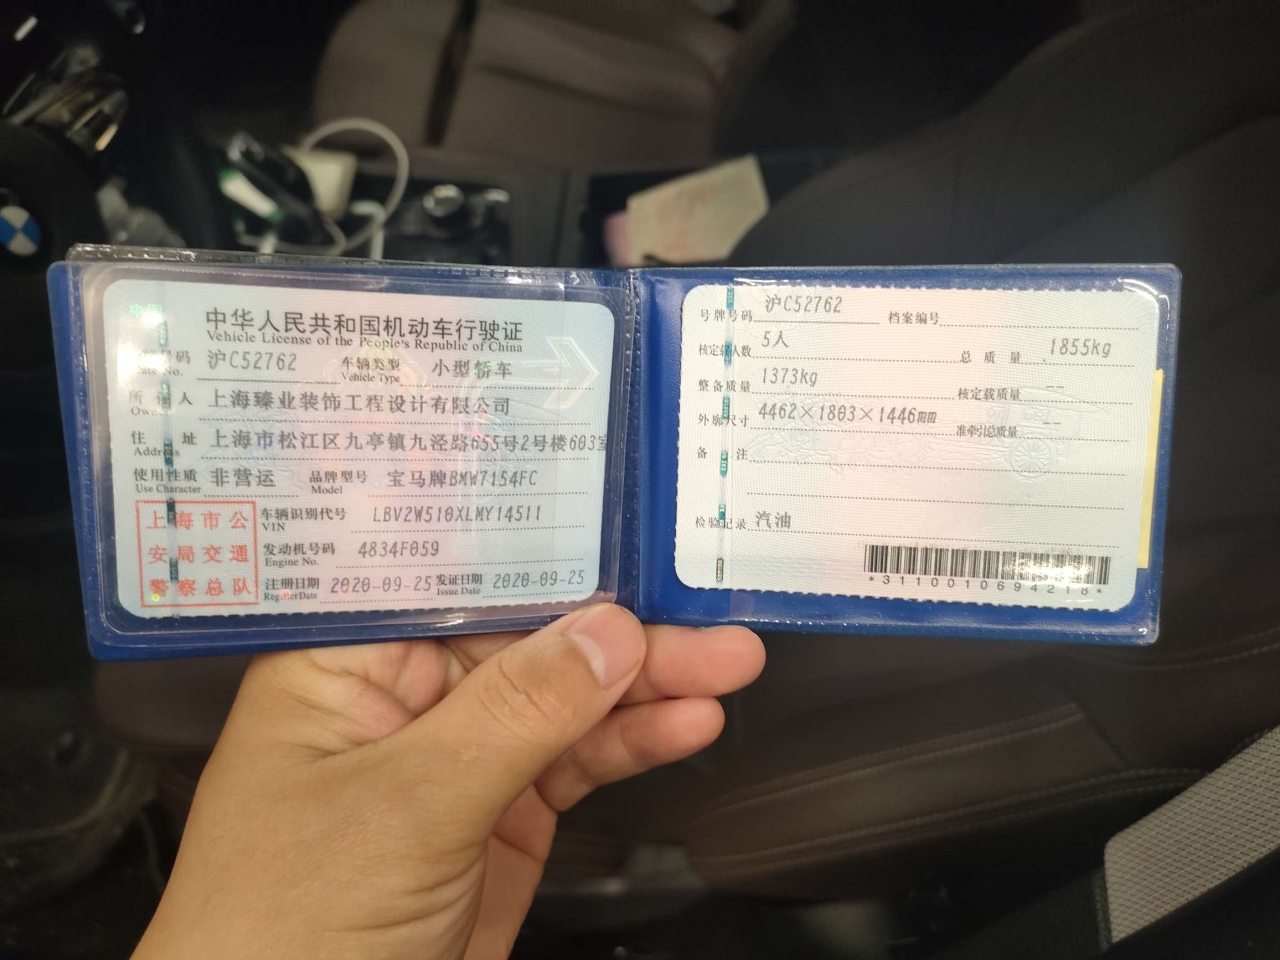 中华人民共和国机动车行驶证
Vehicle License of the People's Republic of China
号码 沪C52762 车辆类型 小型轿车
Plate No. Vehicle Type
所有人 上海臻业装饰工程设计有限公司
Owner
住址 上海市松江区九亭镇九泾路655号2号楼603室
Address
使用性质 非营运 品牌型号 宝马牌BMW7154FC
Use Character Model
上海市公
安局交通
警察总队
车辆识别代号 LBV2W510XLMY14511
VIN
发动机号码 4834F059
Engine No.
注册日期 2020-09-25 发证日期 2020-09-25
Register Date Issue Date
号牌号码 沪C52762 档案编号
核定载人数 5人 总质量 1855kg
整备质量 1373kg 核定载质量 --
外廓尺寸 4462×1803×1446mm 准牵引总质量 --
备注
检验记录 汽油
*3110010694218*